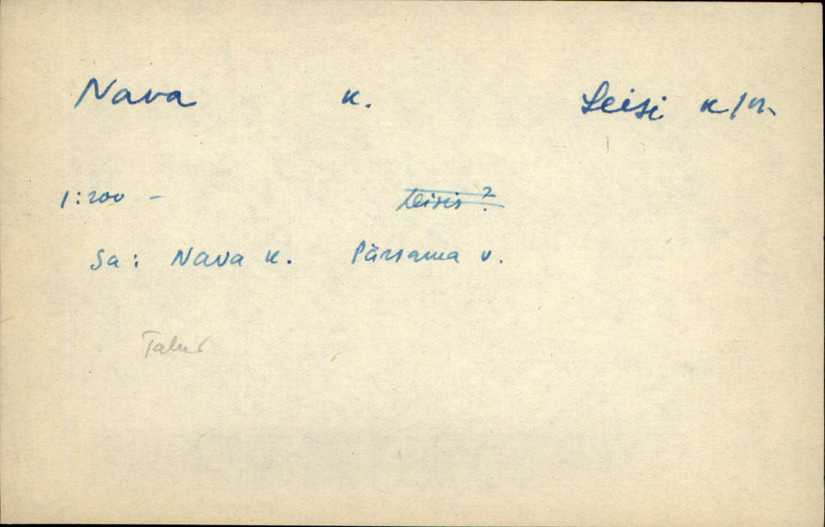 Nava k. Leisi k/n.
1:200 - Leisis?
Sa: Nava k. Pärsama v.